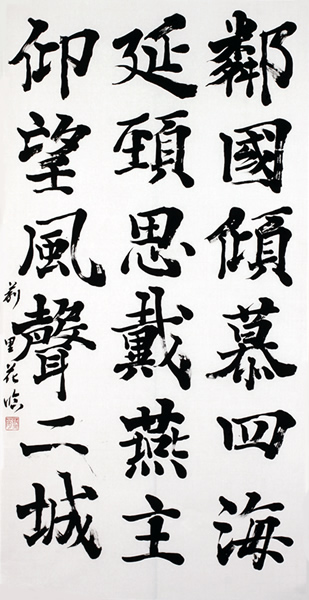 鄰國傾慕四海
延頸思戴燕主
仰望風聲二城
莉里花臨